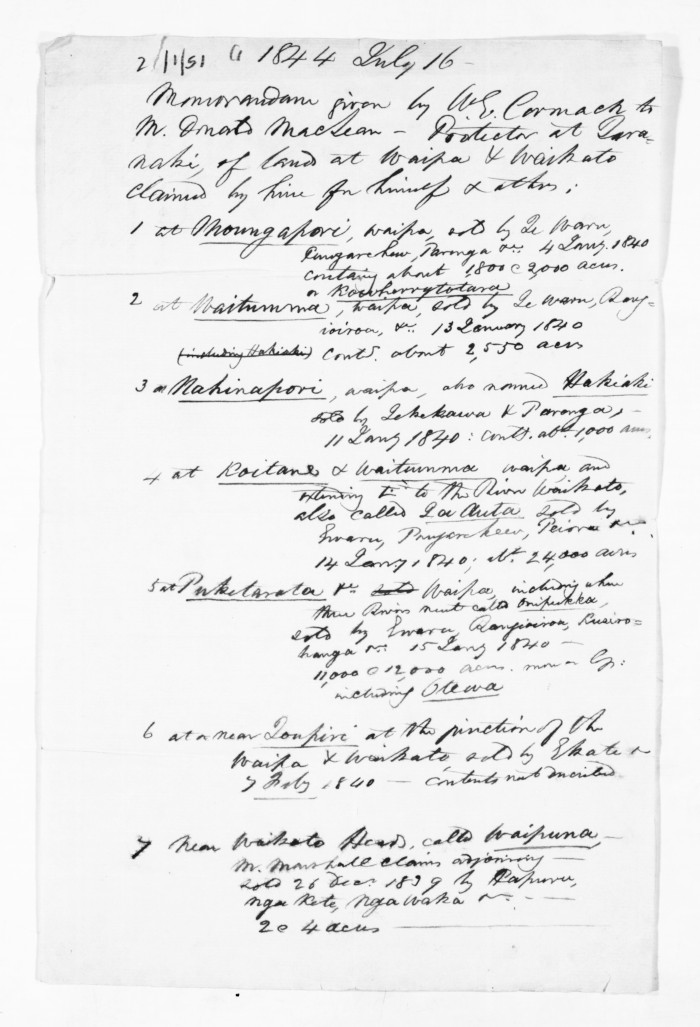 2/1/51 1844 July 16 -
Memorandum given by W.E. Cormack to
Mr. Donald MacLean - Protector at Tara-
naki, of lands at Waipa & Waikato
claimed by him for himself & others;
1 at Moungapori, waipa, sold by Te Waru,
Paronga &c. 4 Jany. 1840
containg about 1800 @ 2,000 acres.
or Kowherrytotara
2 at Waitumma, waipa, sold by Te Waru, Rang-
ioiroa, &c. 13 January 1840
(including Hakiaki) Conts. about 2,550 acres
3 at Mahinapori, waipa, also named Hakiaki
sold by Tekekawa & Paronga, -
11 Jany 1840: conts. abt. 1,000 acres.
4 at Koitane & Waitumma waipa and
extending to the River Waikato,
also called sold by
Ewaru, &c.
14 Jany 1840; abt. 24,000 acres
5 at Puketarata &c sold Waipa, including where
three Rivers meet called Onipukka,
sold by Ewaru, Rangioiroa, Kusiro-
hanga &c. 15 Jany 1840 -
11,000 @ 12,000 acres. more or less:
including Otewa
6 at or near Toupiri at the junction of the
Waipa & Waikato sold by Ekate &c
7 Feby 1840 - contents not
7 Near Waikato Heads, called Waipuna, -
Mr. Marshall claims adjoining -
sold 26 Decr. 1839 by
nga Kete, nga waka &c. -
2 @ 4 acres -